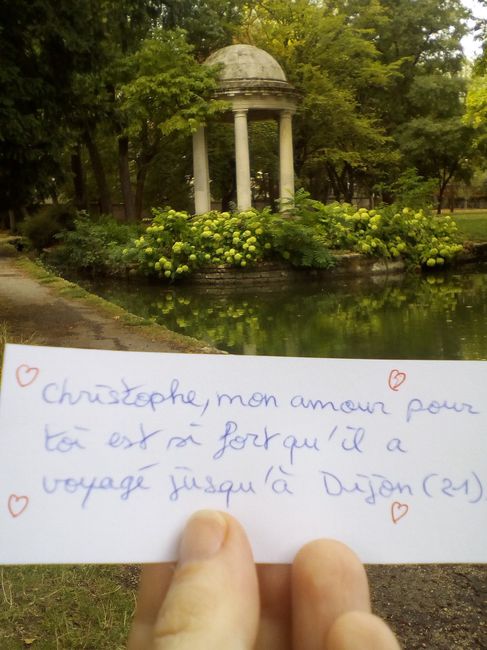 Christophe, mon amour pour
toi est si fort qu'il a
voyagé jusqu'à Dijon (21)